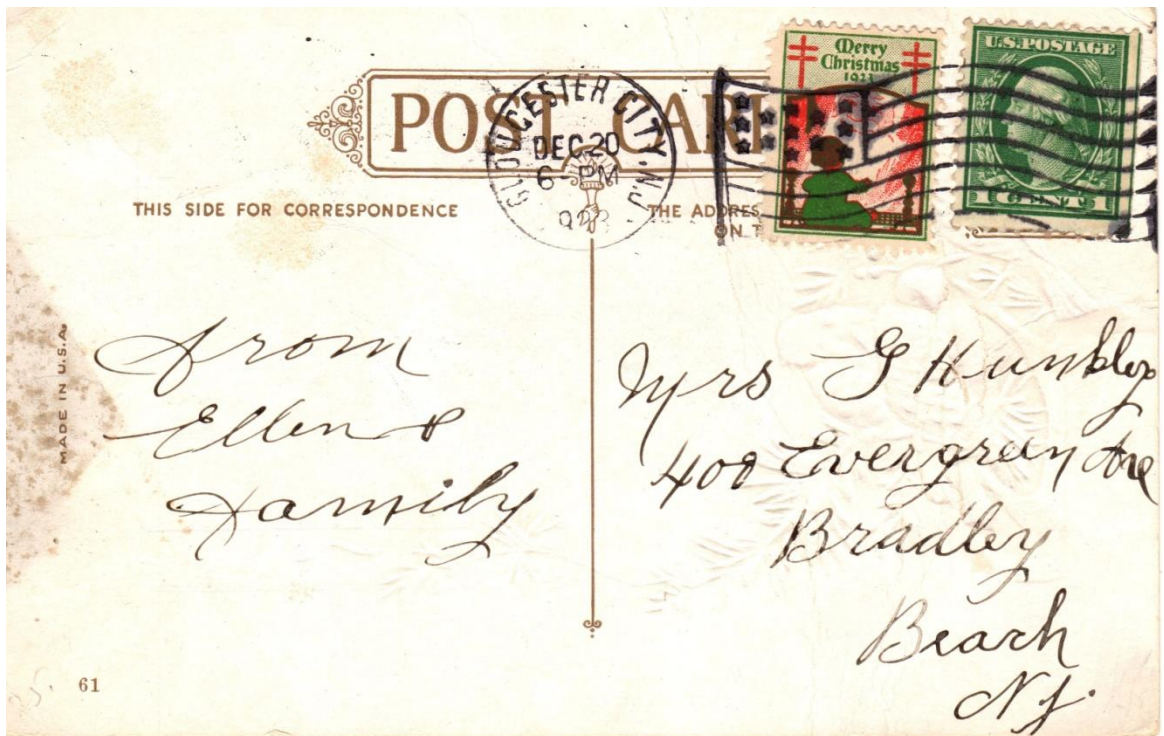 POST CARD
GLOUCESTER CITY, N.J.
DEC 20
6 PM
1923
Merry
Christmas
1923
U.S. POSTAGE
1 CENT 1
THIS SIDE FOR CORRESPONDENCE
THE ADDRESS
ON T
MADE IN U.S.A.
from
Ellen &
Family
Mrs G
400 Evergreen Ave
Bradley
Beach
NJ.
61